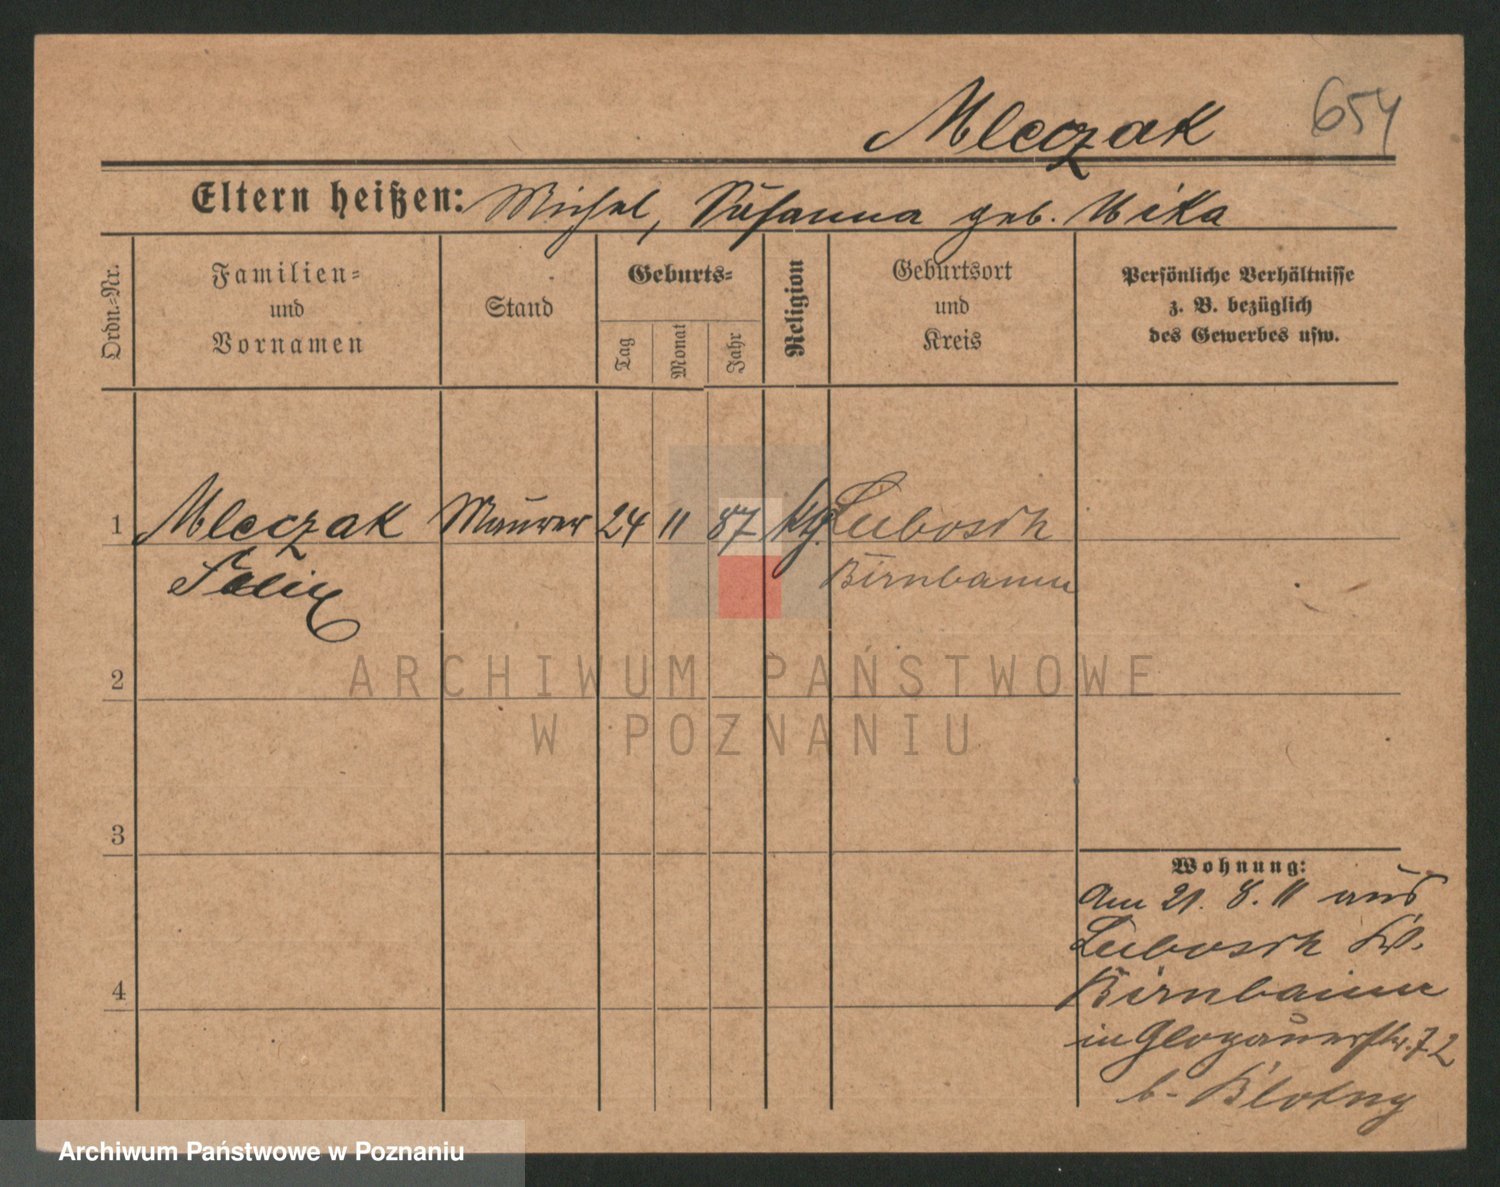 Mleczak
654
Eltern heißen: Michel, Susanna geb. Wika
Ordn.-Nr.
Familien-
und
Vornamen
Stand
Geburts-
Tag
Monat
Jahr
Religion
Geburtsort
und
Kreis
Persönliche Verhältnisse
z. B. bezüglich
des Gewerbes usw.
1 Mleczak Maurer 24 11 87 kg. Lubosch
Felix Birnbaum
2
ARCHIWUM PAŃSTWOWE
W POZNANIU
3
Wohnung:
Am 21. 8. 11 aus
Lubosch Kr.
4
Birnbaum
in Glogauerstr. 72
b. Blotny
Archiwum Państwowe w Poznaniu